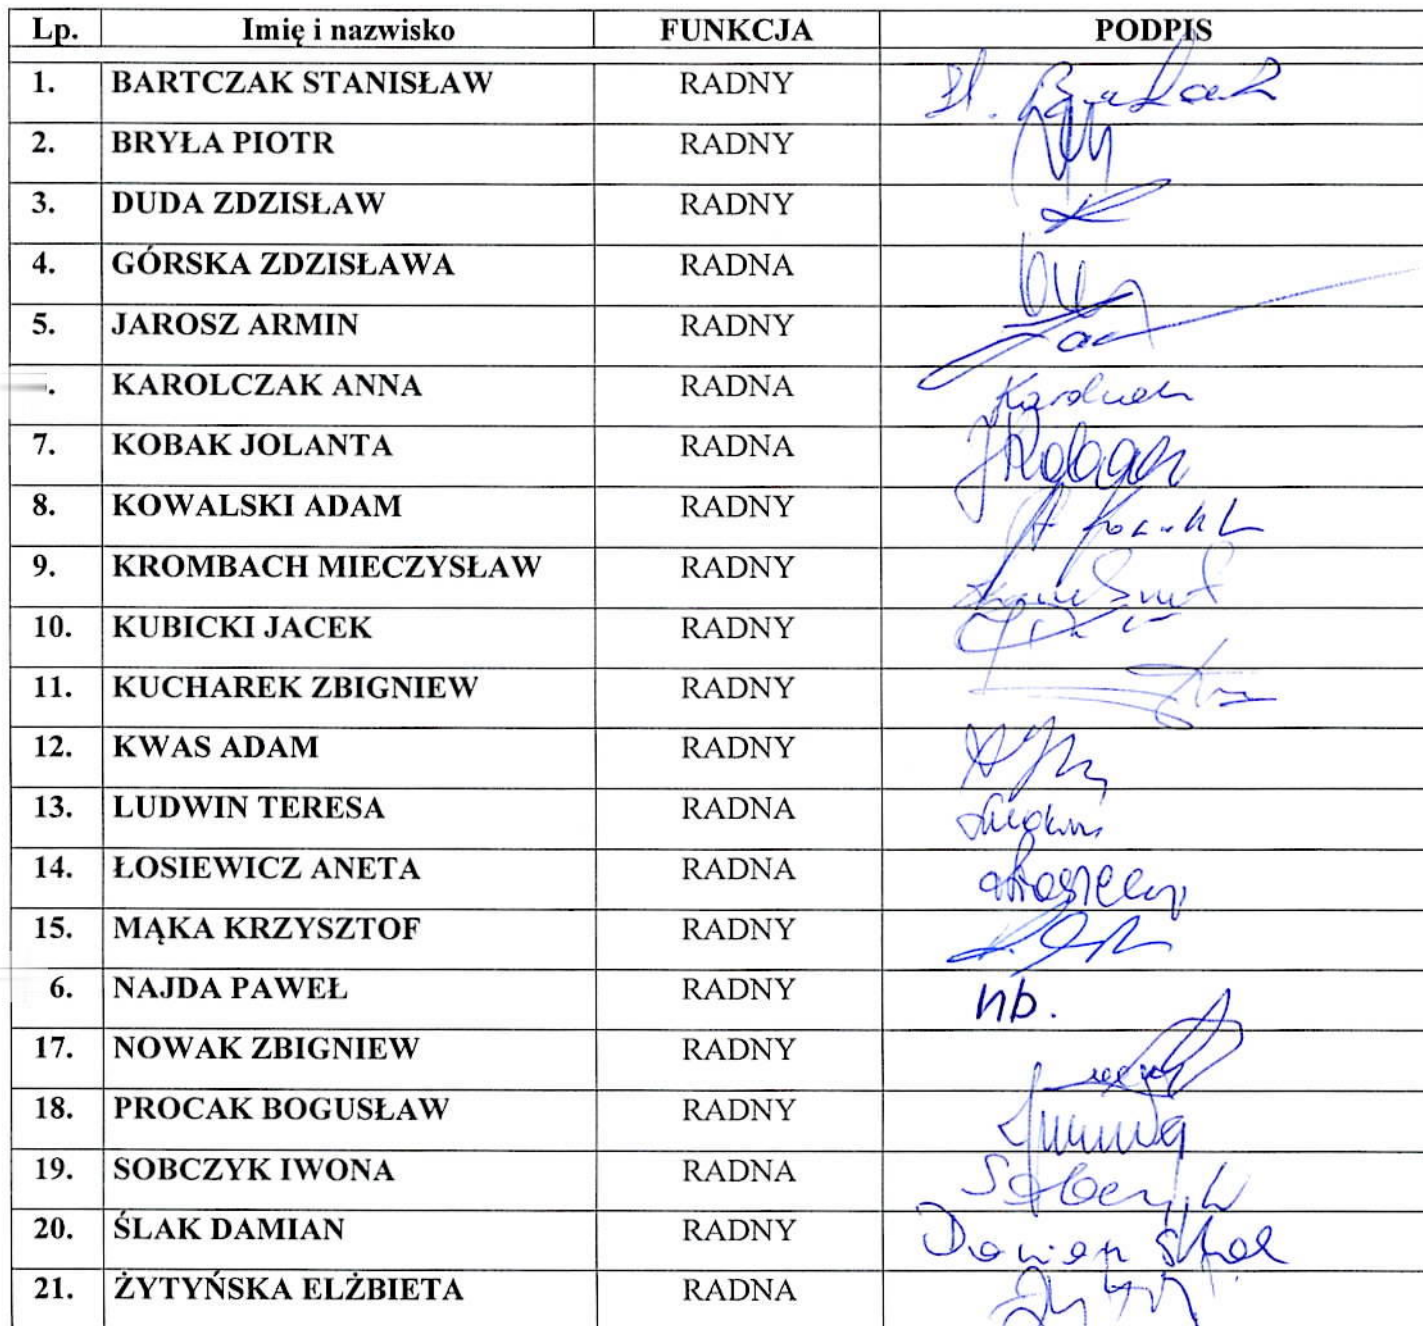 Lp. Imię i nazwisko FUNKCJA PODPIS
1. BARTCZAK STANISŁAW RADNY
2. BRYŁA PIOTR RADNY
3. DUDA ZDZISŁAW RADNY
4. GÓRSKA ZDZISŁAWA RADNA
5. JAROSZ ARMIN RADNY
. KAROLCZAK ANNA RADNA
7. KOBAK JOLANTA RADNA
8. KOWALSKI ADAM RADNY
9. KROMBACH MIECZYSŁAW RADNY
10. KUBICKI JACEK RADNY
11. KUCHAREK ZBIGNIEW RADNY
12. KWAS ADAM RADNY
13. LUDWIN TERESA RADNA
14. ŁOSIEWICZ ANETA RADNA
15. MĄKA KRZYSZTOF RADNY
6. NAJDA PAWEŁ RADNY nb.
17. NOWAK ZBIGNIEW RADNY
18. PROCAK BOGUSŁAW RADNY
19. SOBCZYK IWONA RADNA
20. ŚLAK DAMIAN RADNY
21. ŻYTYŃSKA ELŻBIETA RADNA